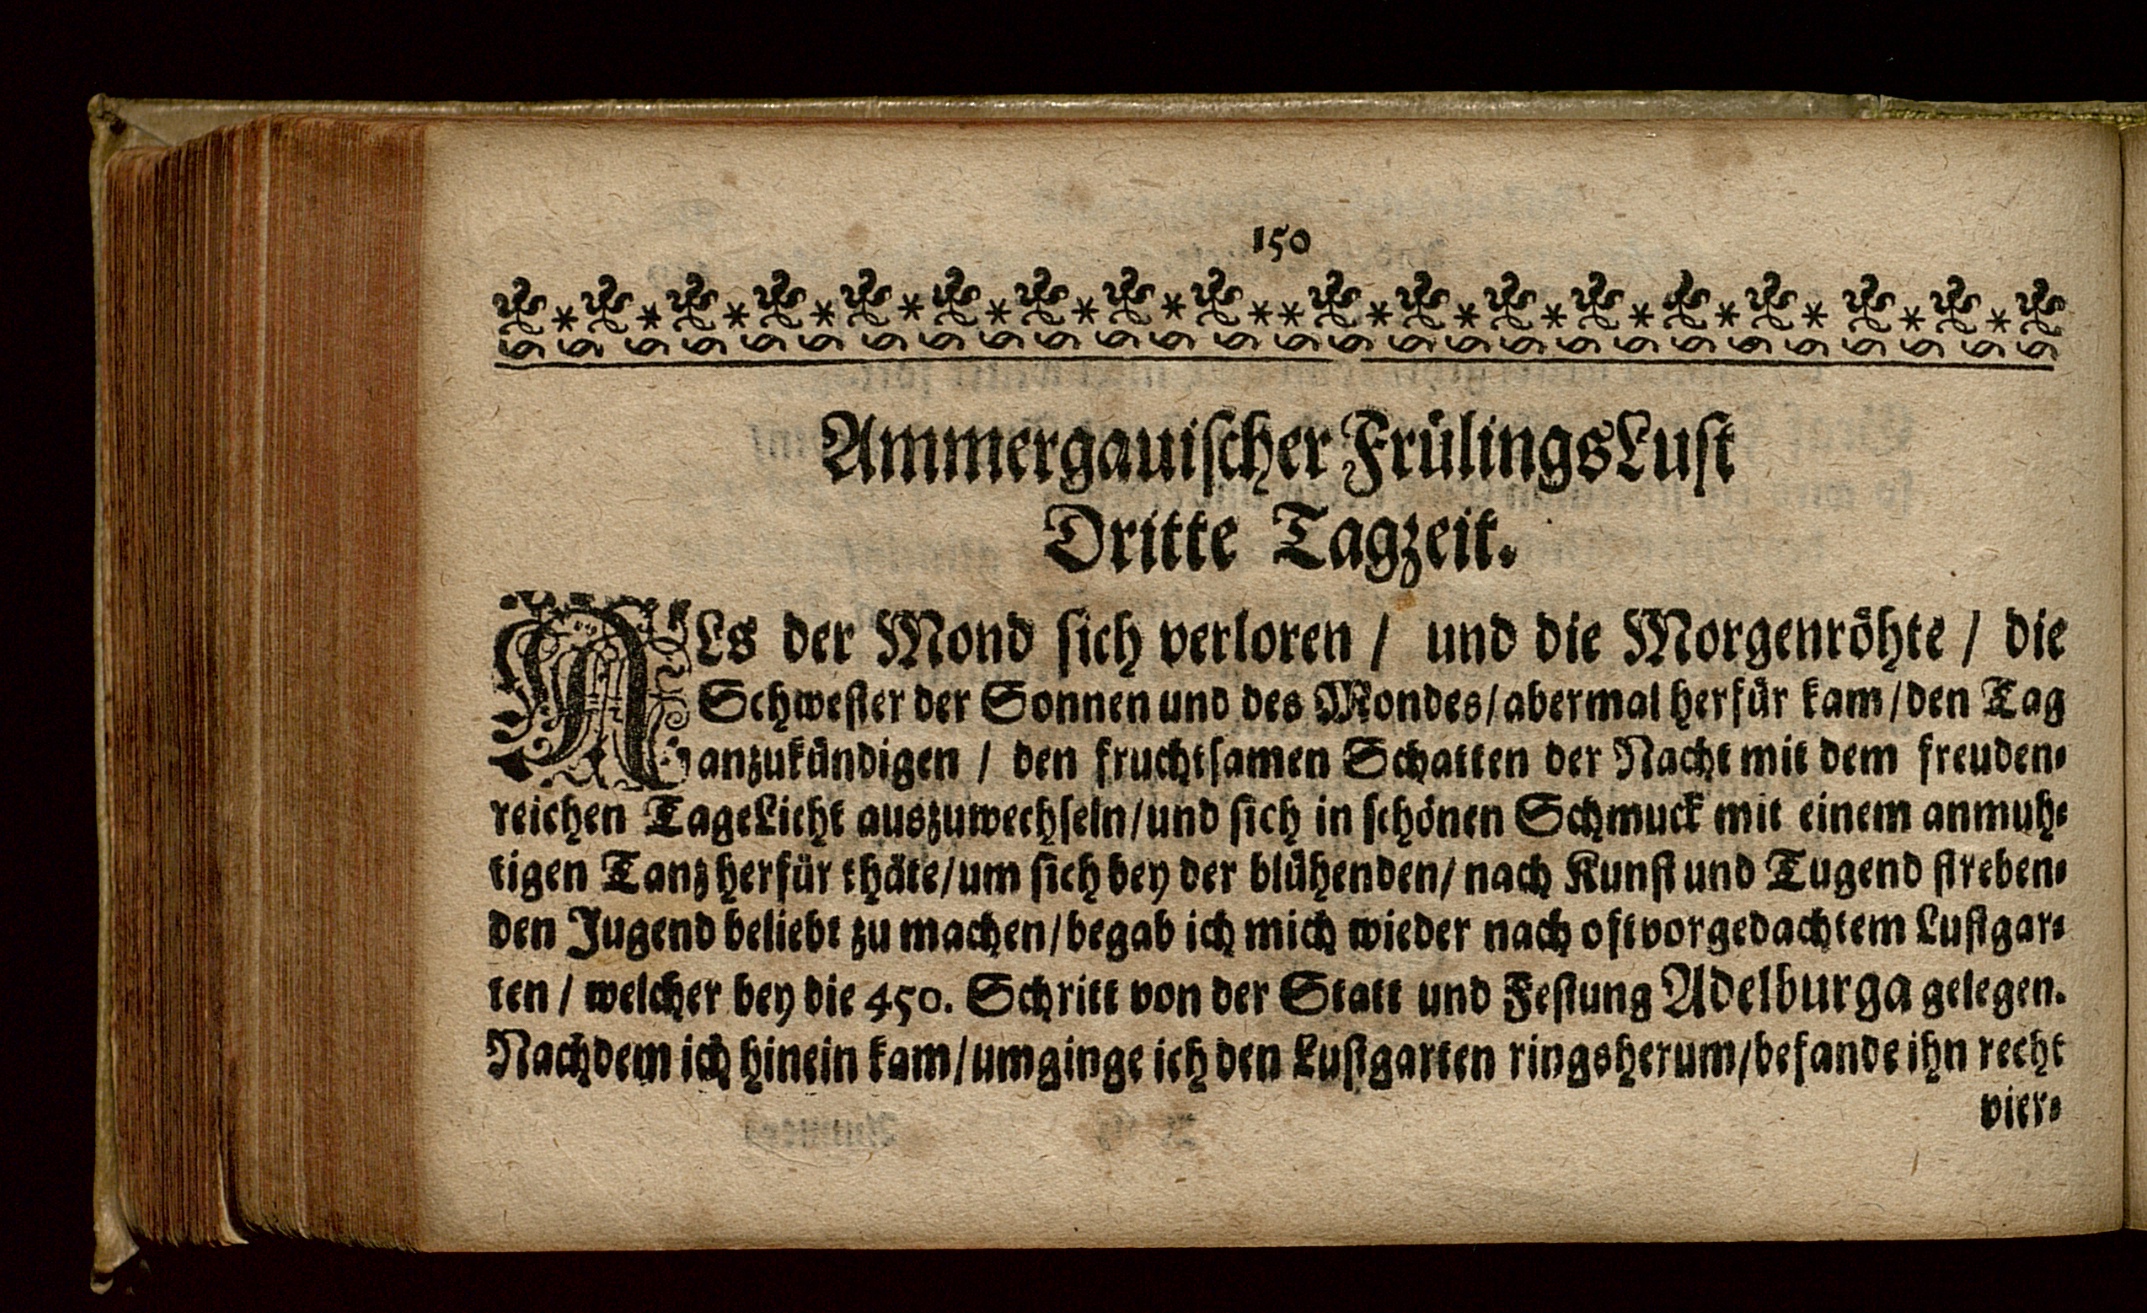 150
Ammergauiſcher FrülingsLuſt
Dritte Tagzeit.
ALs der Mond ſich verloren / und die Morgenröhte / die
Schweſter der Sonnen und des Mondes/abermal herfür kam/den Tag
anzukündigen / den fruchtſamen Schatten der Nacht mit dem freuden⸗
reichen TageLicht auszuwechſeln/und ſich in ſchönen Schmuck mit einem anmuh⸗
tigen Tanz herfür thäte/um ſich bey der blühenden/ nach Kunſt und Tugend ſtreben⸗
den Jugend beliebt zu machen/begab ich mich wieder nach oftvorgedachtem Luſtgar⸗
ten / welcher bey die 450. Schritt von der Statt und Feſtung Adelburga gelegen.
Nachdem ich hinein kam/umginge ich den Luſtgarten ringsherum/befande ihn recht
vier⸗